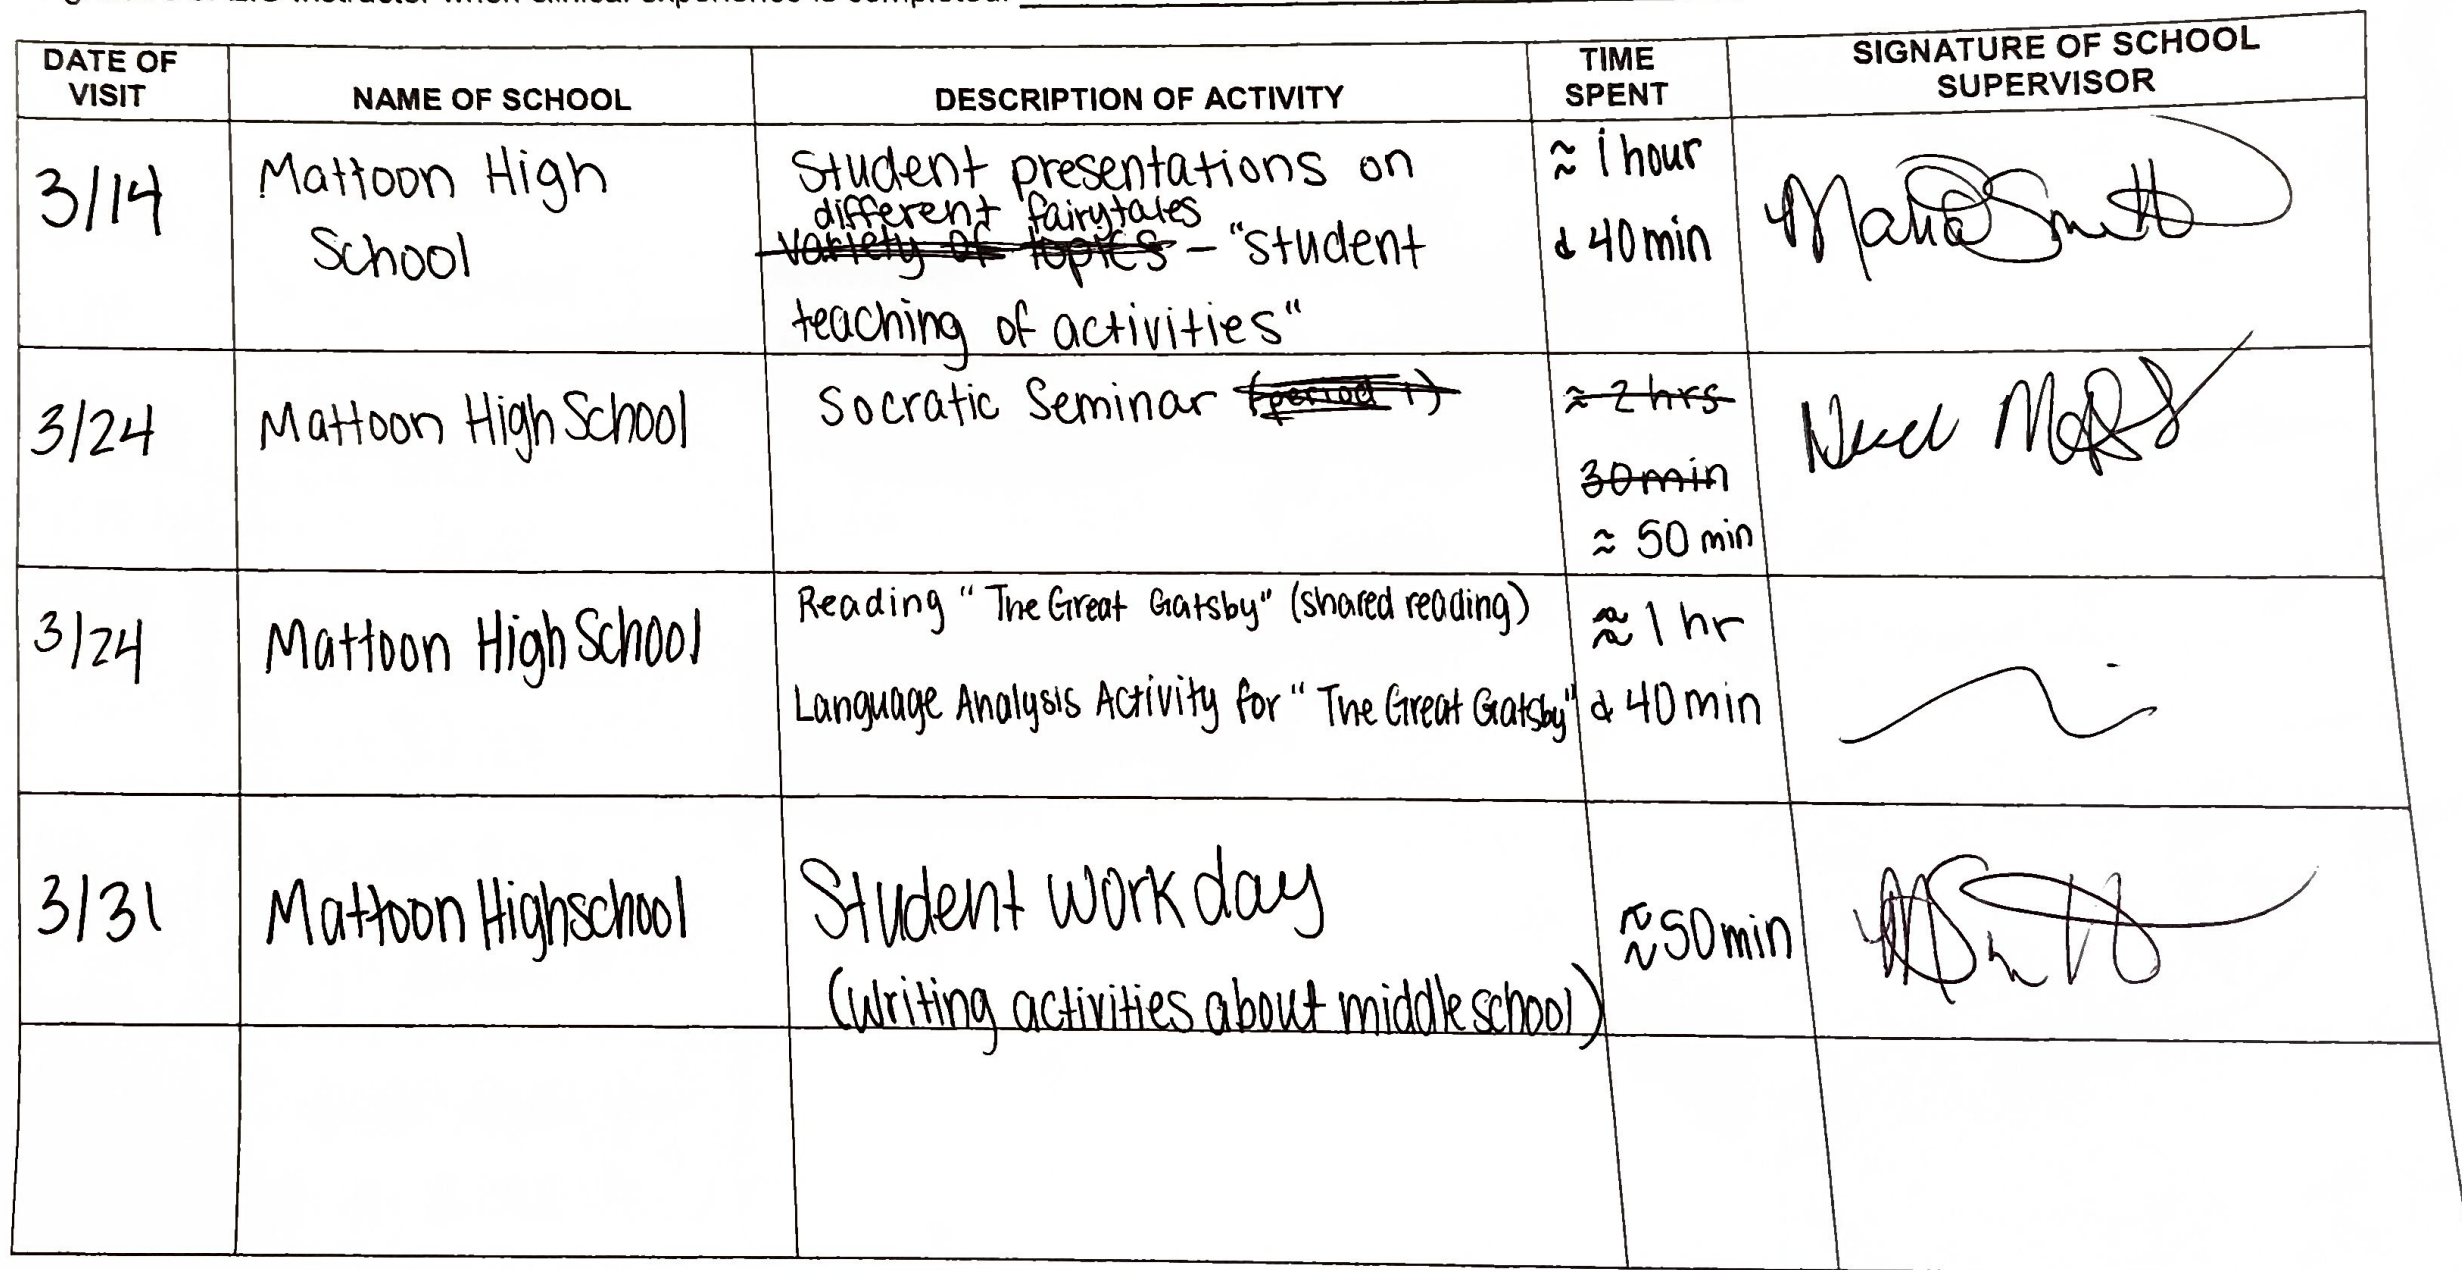 DATE OF VISIT
NAME OF SCHOOL
DESCRIPTION OF ACTIVITY
TIME SPENT
SIGNATURE OF SCHOOL SUPERVISOR
3/14
Mattoon High
School
Student presentations on
different fairytales
variety of topics - "student
teaching of activities"
≈ 1 hour
& 40 min
3/24
Mattoon High School
Socratic Seminar (period 1)
≈ 2 hrs
30 min
≈ 50 min
3/24
Mattoon High School
Reading "The Great Gatsby" (shared reading)
Language Analysis Activity for "The Great Gatsby"
≈ 1 hr
& 40 min
3/31
Mattoon Highschool
Student work day
(writing activities about middle school)
≈ 50 min